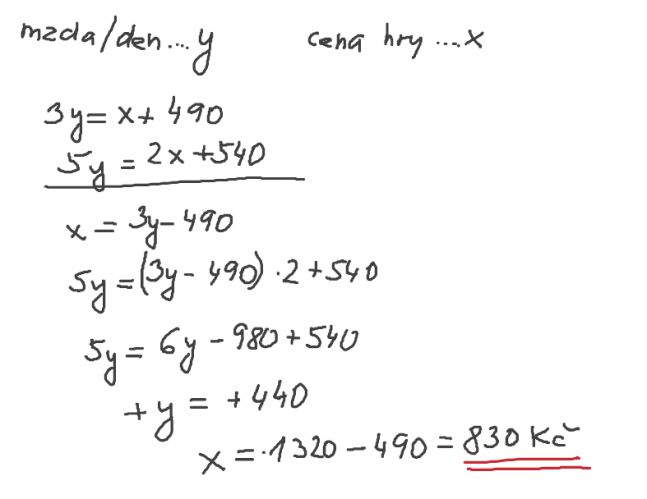 mzda/den...y cena hry ...x
3y= x+ 490
5y = 2x +540
x = 3y-490
5y=(3y- 490) ·2 +540
5y= 6y -980+540
+y = +440
x =·1320-490 = 830 Kč